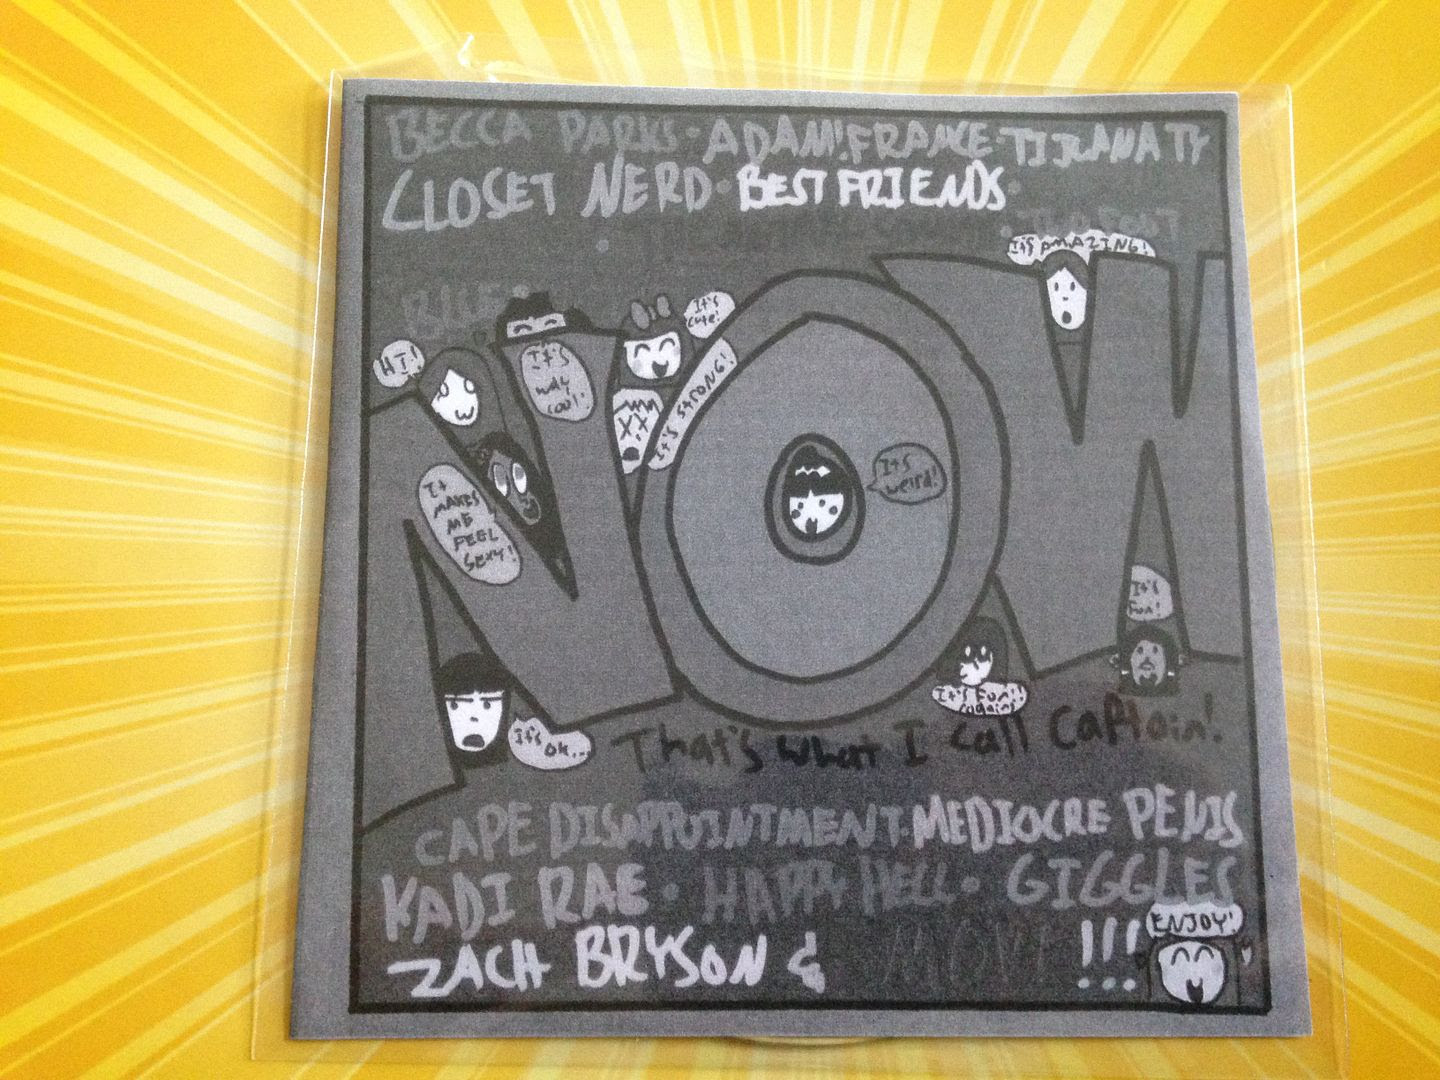 BECCA PARKS · ADAM! FRANCE · TIJUANA TY
CLOSET NERD · BEST FRIENDS ·
RICE ·
It's AMAZING!
HI!
It's way cool!
It's cute!
It's strong!
It's weird!
It makes me feel sexy!
It's fun!
It's ok...
It's fun!!
NOW
That's what I call Captain!
CAPE DISAPPOINTMENT · MEDIOCRE PENIS
KADI RAE · HAPPY HELL · GIGGLES
ZACH BRYSON & MORE !!!
ENJOY!